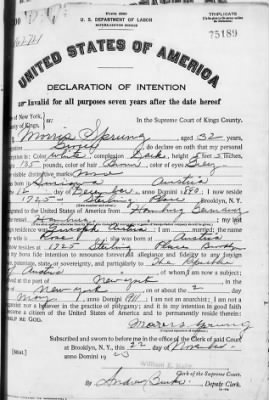 U. S. DEPARTMENT OF LABOR
NATURALIZATION SERVICE
TRIPLICATE
75189
UNITED STATES OF AMERICA
DECLARATION OF INTENTION
Invalid for all purposes seven years after the date hereof
of New York,
In the Supreme Court of Kings County.
of Kings,
Morris Sprung aged 32 years,
do declare on oath that my personal
description is: Color White, complexion Dark, height 5 feet 5 inches,
135 pounds, color of hair color of eyes Grey
visible distinctive marks None
in Austria
day of anno Domini 1890; I now reside
1725 Sterling Place Brooklyn, N. Y.
to the United States of America from Hamburg Germany
; my last
residence was Austria; I am married; the name
wife is Rose; she was born at Austria
at 1725 Sterling Place
my bona fide intention to renounce forever all allegiance and fidelity to any foreign
potentate, state, or sovereignty, and particularly to The Republic
of Austria of whom I am now a subject;
arrived at the port of New York
New York on or about the 2 day
May anno Domini 1911; I am not an anarchist; I am not a
nor a believer in the practice of polygamy; and it is my intention in good faith
become a citizen of the United States of America and to permanently reside therein:
HELP ME GOD.
Morris Sprung
Subscribed and sworn to before me in the office of the Clerk of said Court
[Seal] at Brooklyn, N. Y., this 22 day of November
anno Domini 1923
Clerk of the Supreme Court.
By Deputy Clerk.